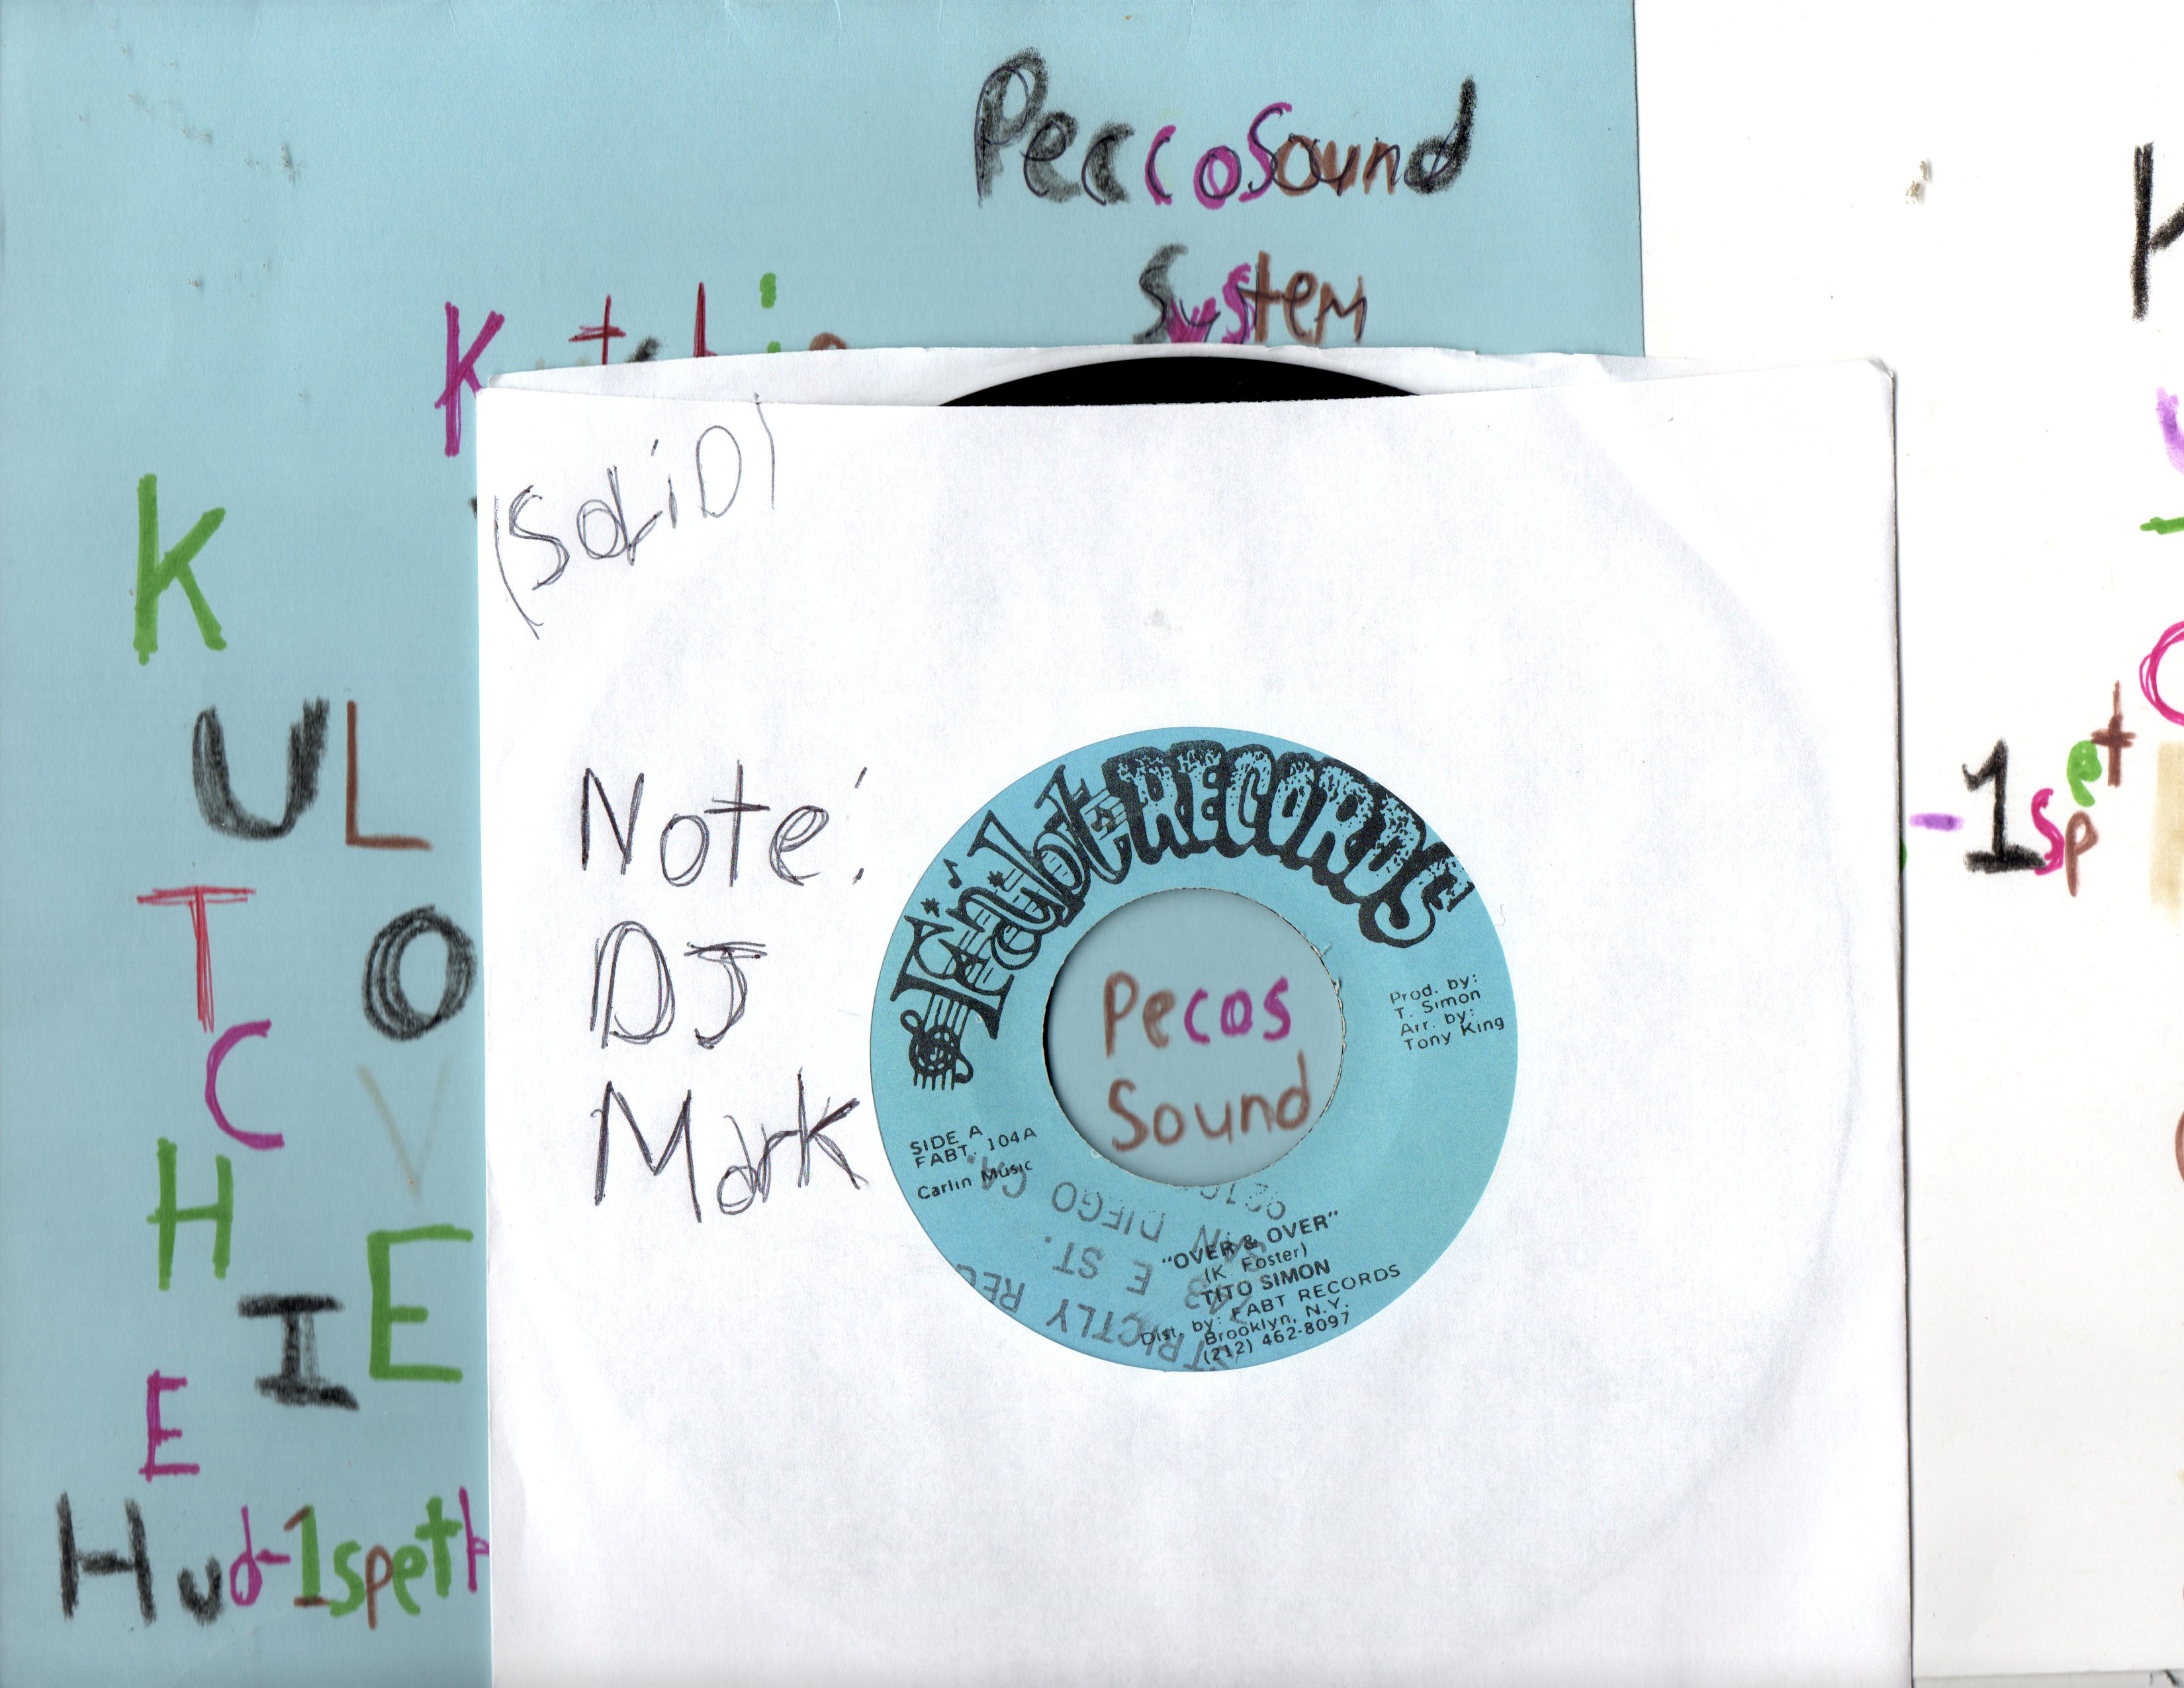 PeccoSound
System
K
(SoLiD)
K
U L
T O
C V
H E
I
E
Hud-1speth
Note:
DJ
Mark
Fabt RECORDS
Prod. by:
T. Simon
Arr. by:
Tony King
Pecos
Sound
SIDE A
FABT. 104A
Carlin Music
"OVER & OVER"
(K. Foster)
TITO SIMON
Dist. by: FABT RECORDS
Brooklyn, N.Y.
(212) 462-8097
E ST.
SAN DIEGO CA.
-1spet